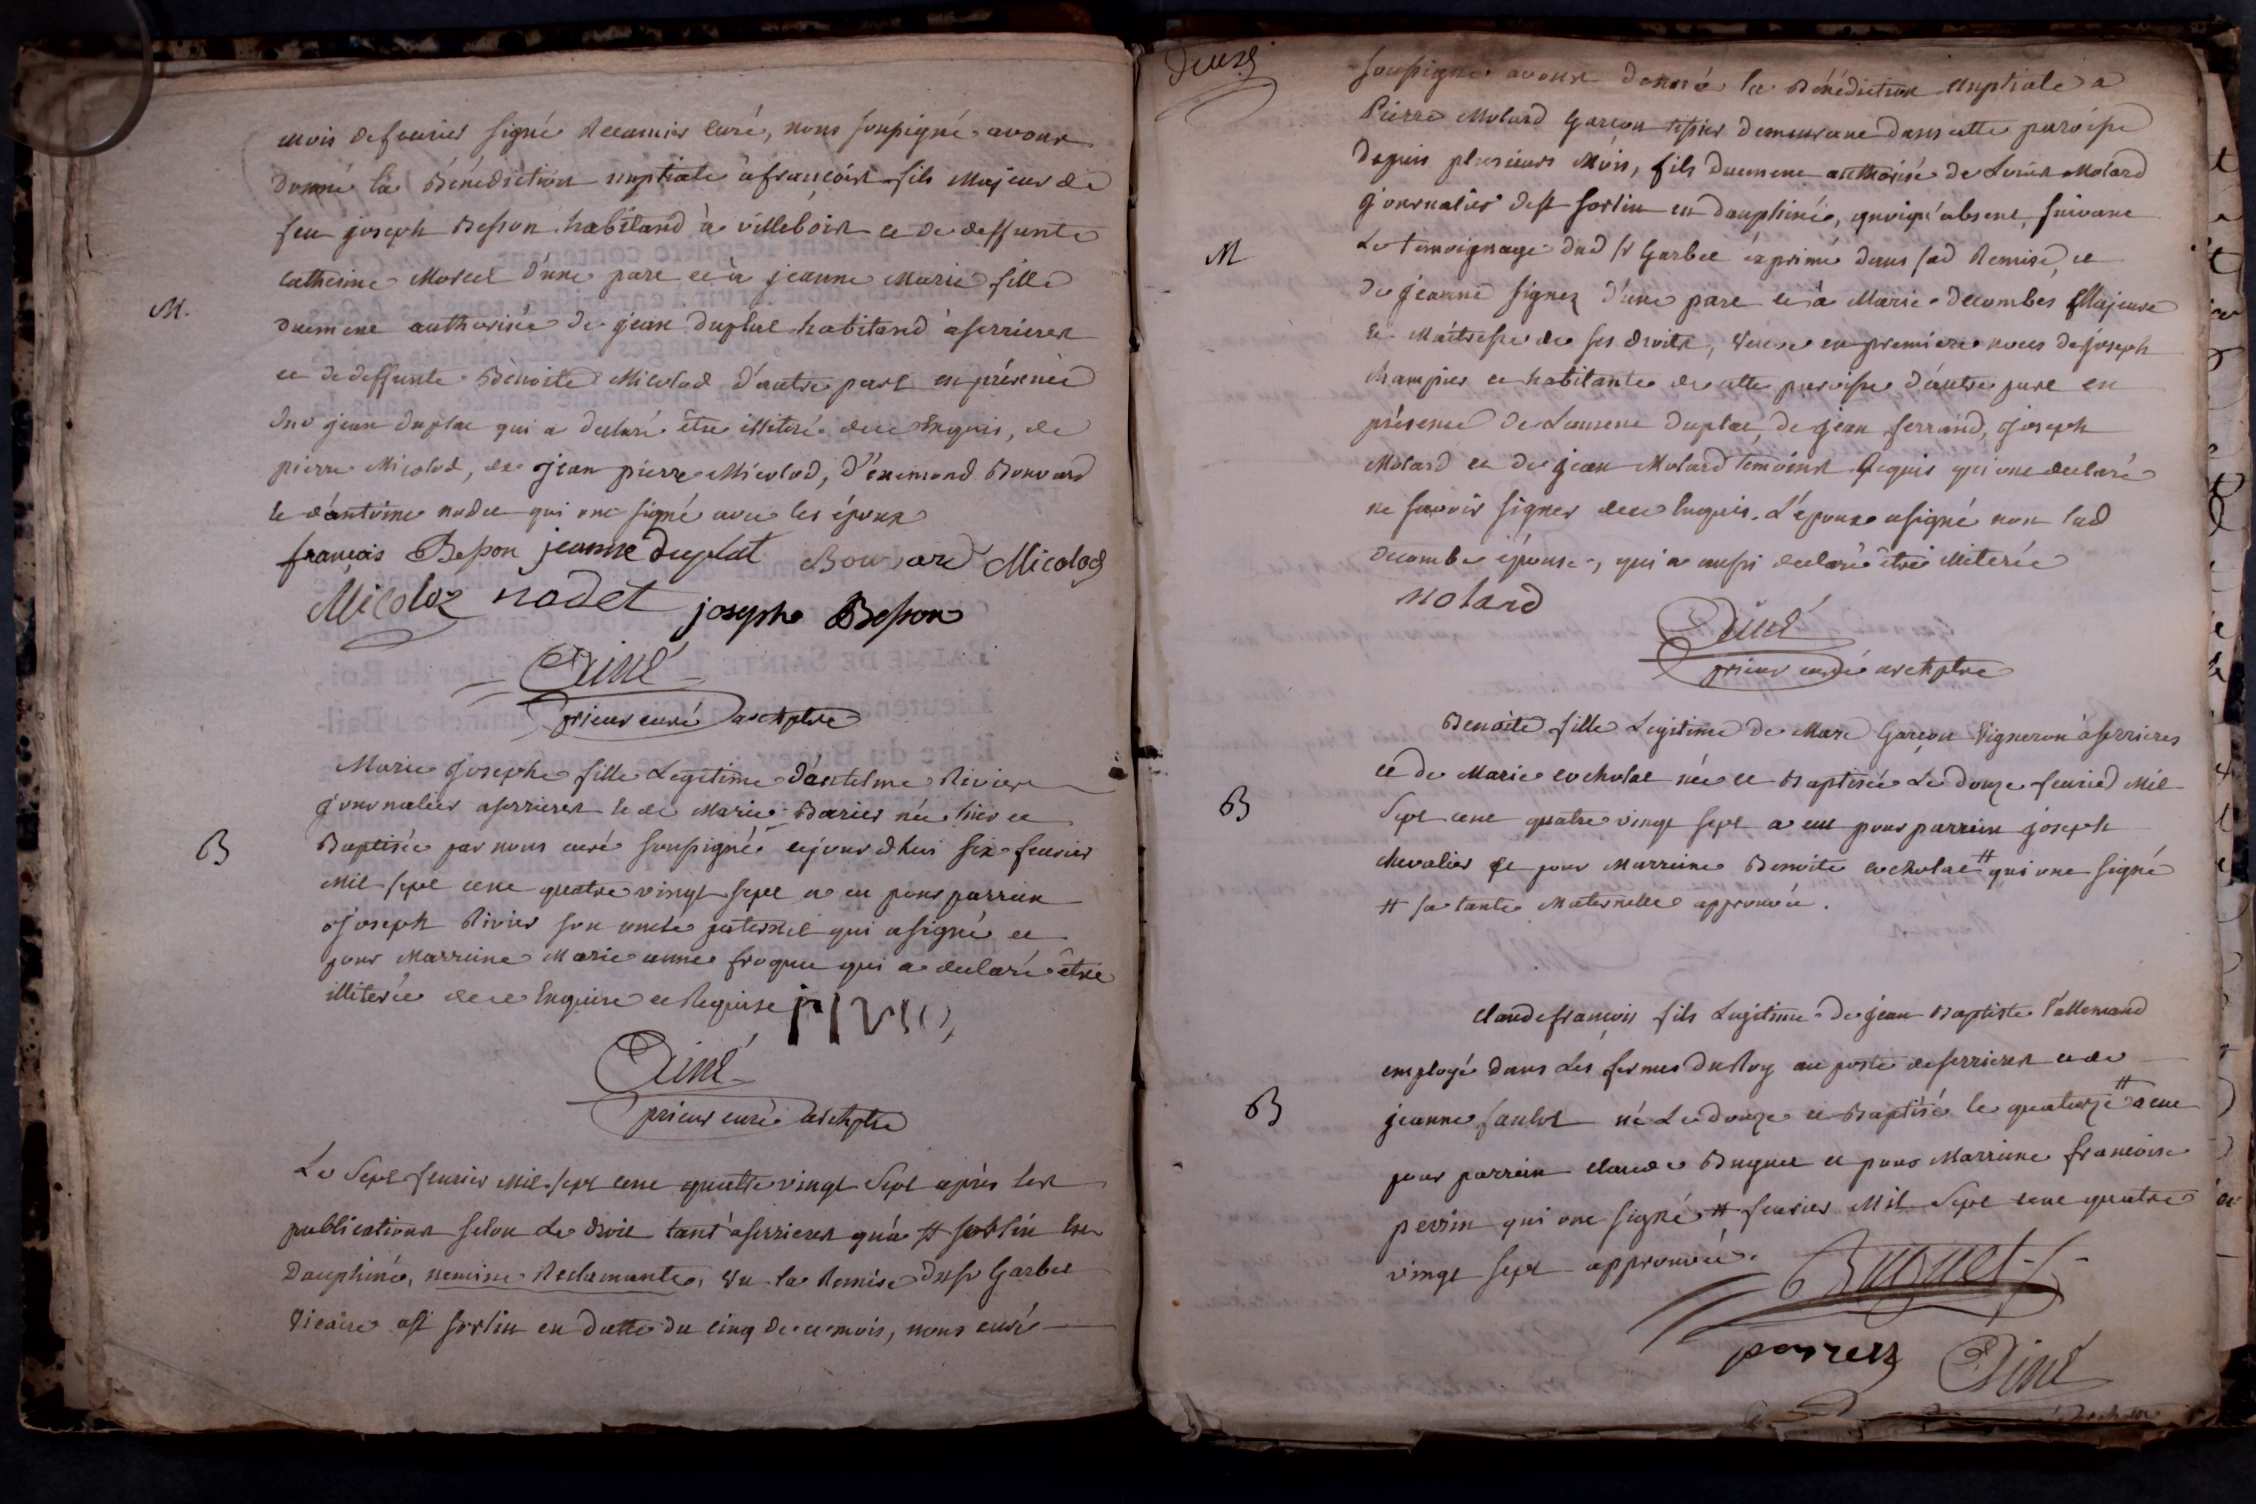 mois de feurier signé Recamier curé, nous soussigné avons
donné la Bénédiction nuptiale à françois fils Majeur de
feu joseph Besson habitand à villebois et de deffunte
catherine Morcel d'une part et à jeanne Marie fille
M.
duement authorisée de jean duplat habitand à serrieres
et de deffunte Benoite Micolod d'autre part en présence
dud jean duplat qui a declaré être illitéré de ce Enquis, de
pierre Micolod, de jean pierre Micolod, d'enemond Bouvard
et d'antoine nodet qui ont signé avec les époux
françois Besson jeanne duplat Bouvard Micolod
Micoloz nodet joseph Besson
Aimé
prieur curé archiptre
Marie josephe fille Legitime d'antelme Rivier
journalier a serrieres et de Marie Darier née hier et
B
Baptisée par nous curé soussigné cejourdhui six feurier
Mil sept cent quatre vingt sept a eu pour parrein
joseph Rivier son oncle paternel qui a signé et
pour Marreine Marie anne froquet qui a declaré être
illiterée de ce Enquise et Requise rivier
Aimé
prieur curé archiptre
Le Sept feurier Mil sept cent quatre vingt Sept après les
publications selon Le Droit tant à serrieres qu'a # sortin en
Dauphiné, nemine Reclamante, vu la Remise du sr Garbet
vicaire est sortin en datte du cinq de ce mois, nous curé
deux
soussigné avons donné la Bénédiction Nuptiale a
Pierre Molard Garcon tissier demeurant dans cette paroisse
depuis plusieurs Mois, fils duement authorisé de Louis Molard
journalier dest sortin en dauphiné, quoiqu'absent, suivant
M
Le témoignage dud sr Garbet exprimé dans sad Remise, et
de jeanne signez d'une part et à Marie decombes Majeure
et Maitresse de ses droits, veuve en premiere noces de joseph
champier et habitante de cette paroisse d'autre part en
présence de Laurent duplat, de jean ferrand, joseph
Molard et de jean Molard temoins Requis qui ont declaré
ne scavoir signer de ce Enquis. L'époux a signé non lad
decombe épouse, qui a aussi declaré être illiterée
Molard
Aimé
prieur curé archiptre
Benoite fille Legitime de Marc Garcon vigneron à serrieres
et de Marie cocholat née et Baptisée Le douze feurier Mil
B
Sept cent quatre vingt sept a eut pour parrein joseph
chevalier et pour Marreine Benoite cocholat # qui ont signé
# sa tante Maternelle approuvée.
claude francois fils Legitime de jean Baptiste l'allemand
employé dans Les fermes du Roy au poste de serrieres et de
B
jeanne saulos né Le douze et Baptisé le quatorze # a eut
pour parrein claude Buguet et pour Marreine francoise
perrin qui ont signé # feurier Mil Sept cent quatre
vingt sept approuvée.
Buguet
perrein
Aimé